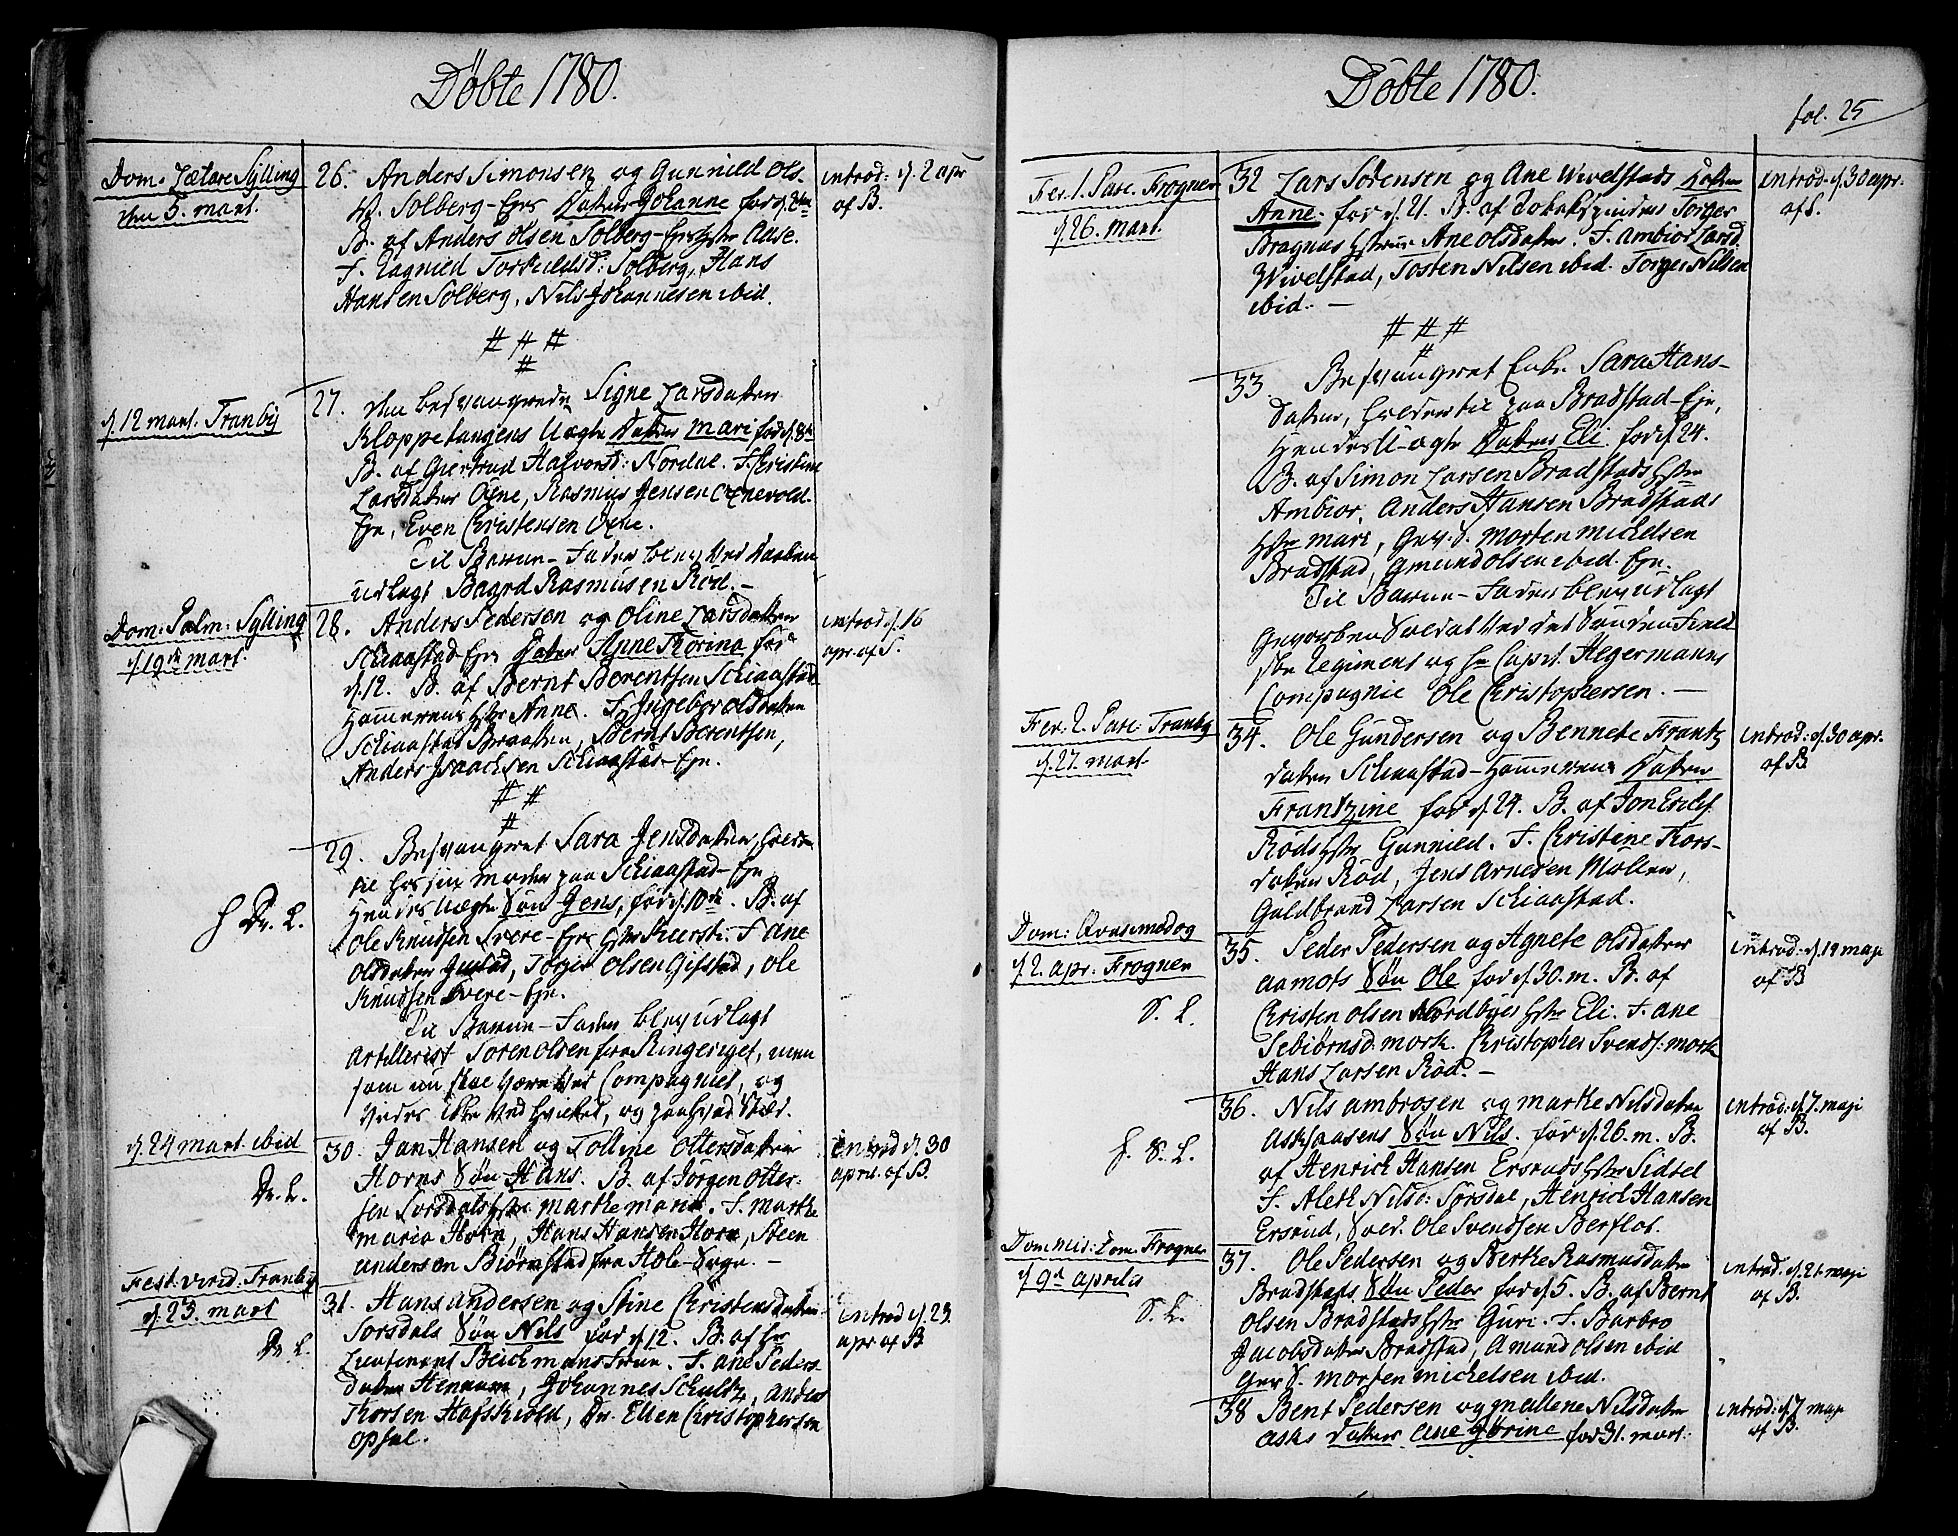 Döbte 1780.
Dom. Lætare Sylling
den 5. mart.
26. Anders Simonsen og Gunnild Ols
d. Solberg-Eje Datter Johanne fød d. 2den
B. af Anders Olsen Solberg-Ejes hstr Aase.
F. Ragnild Torkildsd: Solberg, Hans
Hansen Solberg, Nils Johannesen ibid.
introd: d. 2 apr
af B.
# # #
#
d. 12 mart. Tranby
27. den besvangrede Signe Larsdatter
Kloppetangens Uægte Datter Mari fød d. 8de
B. af Giertrud Halvorsd: Nordal. F. Christine
Larsdatter Öyne, Rasmus Jensen
Eje, Even Christensen Öyne.
Til Barne-Fader blev ved Daaben
udlagt Baard Rasmusen Röd.-
Dom: Palm: Sylling
d. 19de mart.
28. Anders Pedersen og Oline Larsdatter
Schiaastad Eje Datter Anne Torina fød
d. 12. B. af Bernt Berentsen Schiaastad
Hammerens hstr Anne. F. Ingebor Olsdatter
Schiaastad Braaten, Bernt Berentsen,
Anders Isaachsen Schiaastad-Eje.
introd d. 16
apr. af S.
# #
#
29. Besvangret Sara Jensdatter, holder
til hos sin moder paa Schiaastad-Eje
Hendes Uægte Søn Jens, fød d. 10de. B. af
Ole Knudsen Svere-Ejes hstr Kiersti. F. Ane
Olsdatter Gustad, Torjer Olsen Gifstad, Ole
Knudsen Svere-Eje.
Til Barne-Fader blev udlagt
Artillerist Soren Olsen fra Ringeriget, men
som nu skal være ved Compagniet, og
vides ikke ved hvilket, og paa hvad Stæd.
Dr. L.
d. 24 mart. ibid
Dr. L.
30. Jan Hansen og Tolline Ottersdatter
Horns Søn Hans. B. af Jörgen Otter-
sen Sorsdals hstr Marthe Maria. F. Marthe
Maria Horn, Hans Hansen Horn, Steen
Andersen Biörnstad fra Hole-Sogn. -
introd d. 30
april. af B.
Fest. virid: Tranby
d. 23. mart
Dr. L.
31. Hans Andersen og Stine Christensdatter
Sorsdals Søn Nils fød d. 12. B. af Hr
Lieutenant Beichmans Frue. F. Ane Peders
datter Hennum, Johannes Schultz, Anders
Thorsen Hafskiold, Dr. Ellen Christophersen
Opsal.
introd d. 23.
apr af B
Döbte 1780.
fol. 25
Fer. 1. Pasc. Frogner
d. 26. mart.
32 Lars Sörensen og Ane Wivelstads Datter
Anne. fød d. 21. B. af Tobakspinder Torger
Bragnæs hstrue Ane Olsdatter. F. Ambior Larsd.
Wivelstad, Tosten Nilsen ibid. Torger Nilsen
ibid. -
introd: d. 30 apr.
af S.
# # #
#
33. Besvangret Enke Sara Hans-
datter, holder til paa Bradstad-Eje,
Hendes U-ægte Datter Eli fød d. 24.
B. af Simon Larsen Bradstads hstr
Ambior. Anders Hansen Bradstads
hstr Mari, Gev. S. Morten Michelsen
Bradstad, Gmund Olsen ibid. Eje.
Til Barne-Fader blev udlagt
Gevorben Soldat ved det Sønden
ske Regiment og Hr Capt. Hegermanns
Compagnie Ole Christophersen. -
Fer. 2. Pasc. Tranby
d. 27. mart
34. Ole Gundersen og Bennete Frantz
datter Schiaastad-Hammerens Datter
Frantzine fød d. 24. B. af Jon
Röds hstr Gunnild. F. Christine Thors-
datter Röd, Jens Arnesen Möllen,
Guldbrand Larsen Schiaastad.
introd: d. 30 apr.
af B
Dom: Qvasimodog
d. 2. apr: Frogner
S. L.
35. Peder Pedersen og Agnete Olsdatter
Aamots Søn Ole fød d. 30. m. B. af
Christen Olsen Nordbyes hstr Eli. F. Ane
Sebiörnsd: Mork. Christopher Svends. Mork
Hans Larsen Röd. -
introd: d. 14 maji
af B
36. Nils Ambrosen og Marthe Nilsdatter
Askaasens Søn Nils. fød d. 26. m. B.
af Henrich Hansen Ersruds hstr Sidsel
F. Aleth Nilsd: Sörsdal, Henrich Hansen
Ersrud, Sold. Ole Svendsen Berflot.
f. S. L.
introd: d. 7. maji
af B.
Dom mis: Dom. Frogner
d. 9de Aprilis
S. L.
37. Ole Pedersen og Berthe Rasmusdatter
Bradstads Søn Peder fød d. 5. B. af Bernt
Olsen Bradstads hstr Guri. F. Barbro
Jacobsdatter Bradstad, Amund Olsen ibid
Gev. S. Morten Michelsen ibid.
introd: d. 21. maji
af B.
38 Bent Pedersen og Mallene Nilsdatter
Asks Datter Ane Görine fød 31. mart.
introd: d. 7 maji
af B.